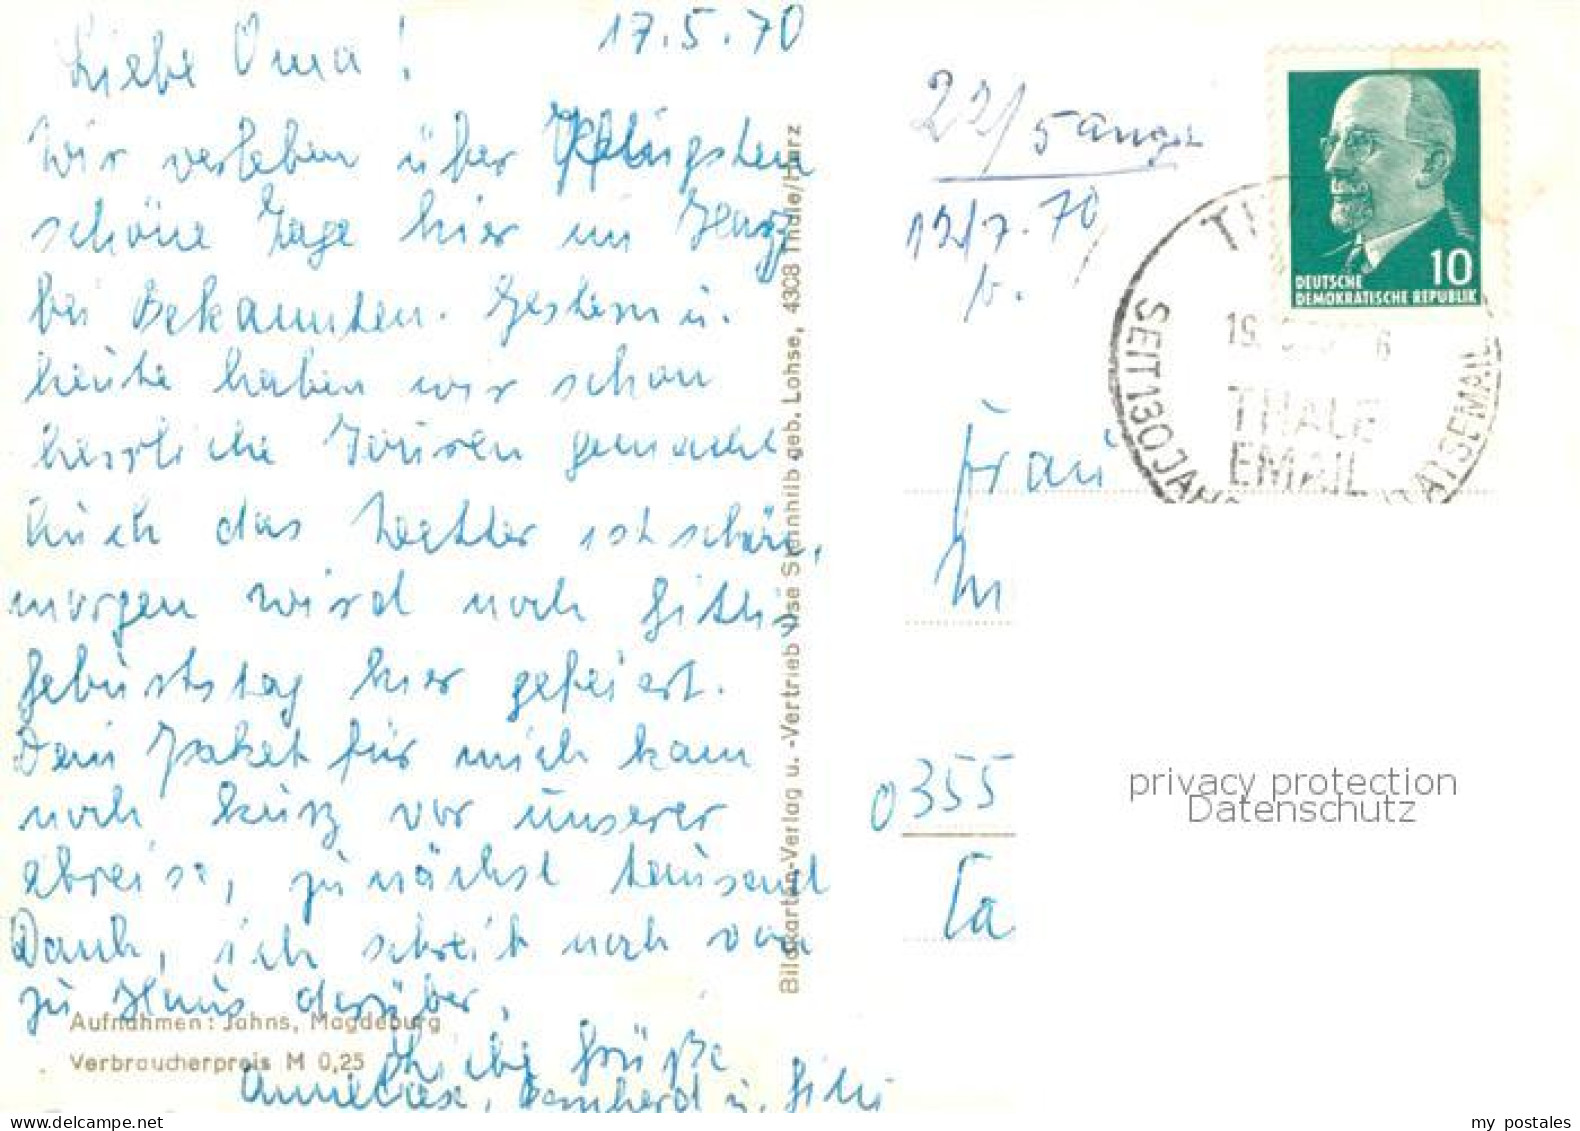 17.5.70
Liebe Oma!
Wir verleben über Pfingsten
schöne Tage hier im Harz
bei Bekannten. Gestern u.
heute haben wir schon
herrliche Touren gemacht
Auch das Wetter ist schön,
morgen wird noch Gittis
Geburtstag hier gefeiert.
Dein Paket für mich kam
noch kurz vor unserer
abreise, zunächst tausend
Dank, ich schreib noch von
zu Haus darüber.
Liebe Grüße
Anneliese, Bernhard u. Gitti
Aufnahmen: Jahns, Magdeburg
Verbraucherpreis M 0,25
Bildkarten-Verlag u. -Vertrieb Ilse Steinhilb geb. Lohse, 4308 Thale/Harz
22/5 ange
12/7.70
b.
DEUTSCHE
DEMOKRATISCHE REPUBLIK
10
SEIT 130 JAHREN
THALE
EMAIL
Frau
0355
privacy protection
Datenschutz
my postales